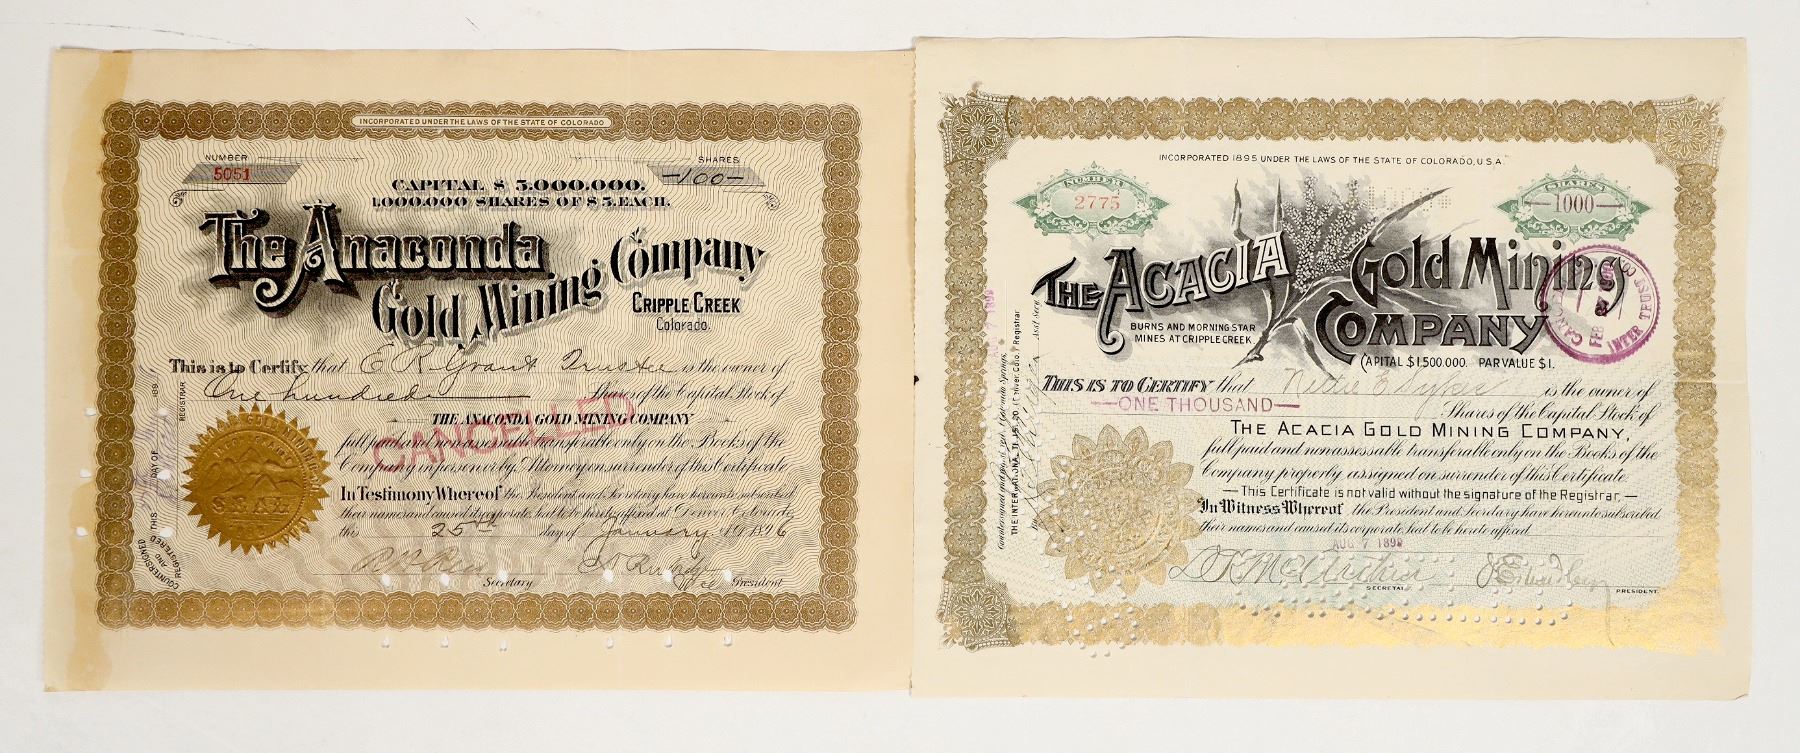 INCORPORATED UNDER THE LAWS OF THE STATE OF COLORADO
NUMBER
5051
SHARES
-100-
CAPITAL $ 5.000.000.
1.000.000 SHARES OF $ 5. EACH.
The Anaconda
Gold Mining Company
CRIPPLE CREEK
Colorado.
This is to Certify that E R Grant Trustee is the owner of
One hundred Shares of the Capital Stock of
THE ANACONDA GOLD MINING COMPANY
full paid and non assessable transferable only on the Books of the
Company in person or by Attorney on surrender of this Certificate
CANCELLED
In Testimony Whereof the President and Secretary have hereunto subscribed
their names and caused its corporate seal to be hereto affixed at Denver, Colorado,
this 25th day of January 1896
Secretary
Vice President
COUNTERSIGNED AND REGISTERED
THIS DAY OF 189
REGISTRAR
SEAL
INCORPORATED 1895 UNDER THE LAWS OF THE STATE OF COLORADO, U.S.A.
NUMBER
2775
SHARES
-1000-
THE ACACIA Gold Mining
COMPANY
BURNS AND MORNING STAR
MINES AT CRIPPLE CREEK
CAPITAL $1,500.000. PAR VALUE $1.
FEB
INTER TRUST CO
THIS IS TO CERTIFY that Nettie E is the owner of
-ONE THOUSAND- Shares of the Capital Stock of
THE ACACIA GOLD MINING COMPANY,
full paid and nonassessable transferable only on the Books of the
Company properly assigned on surrender of this Certificate
-This Certificate is not valid without the signature of the Registrar,-
In Witness Whereof the President and Secretary have hereunto subscribed
their names and caused its corporate seal to be hereto affixed
AUG 7 189
SECRETARY
PRESIDENT
THE INTERNATIONAL TRUST CO. (Denver, Colo.) Registrar